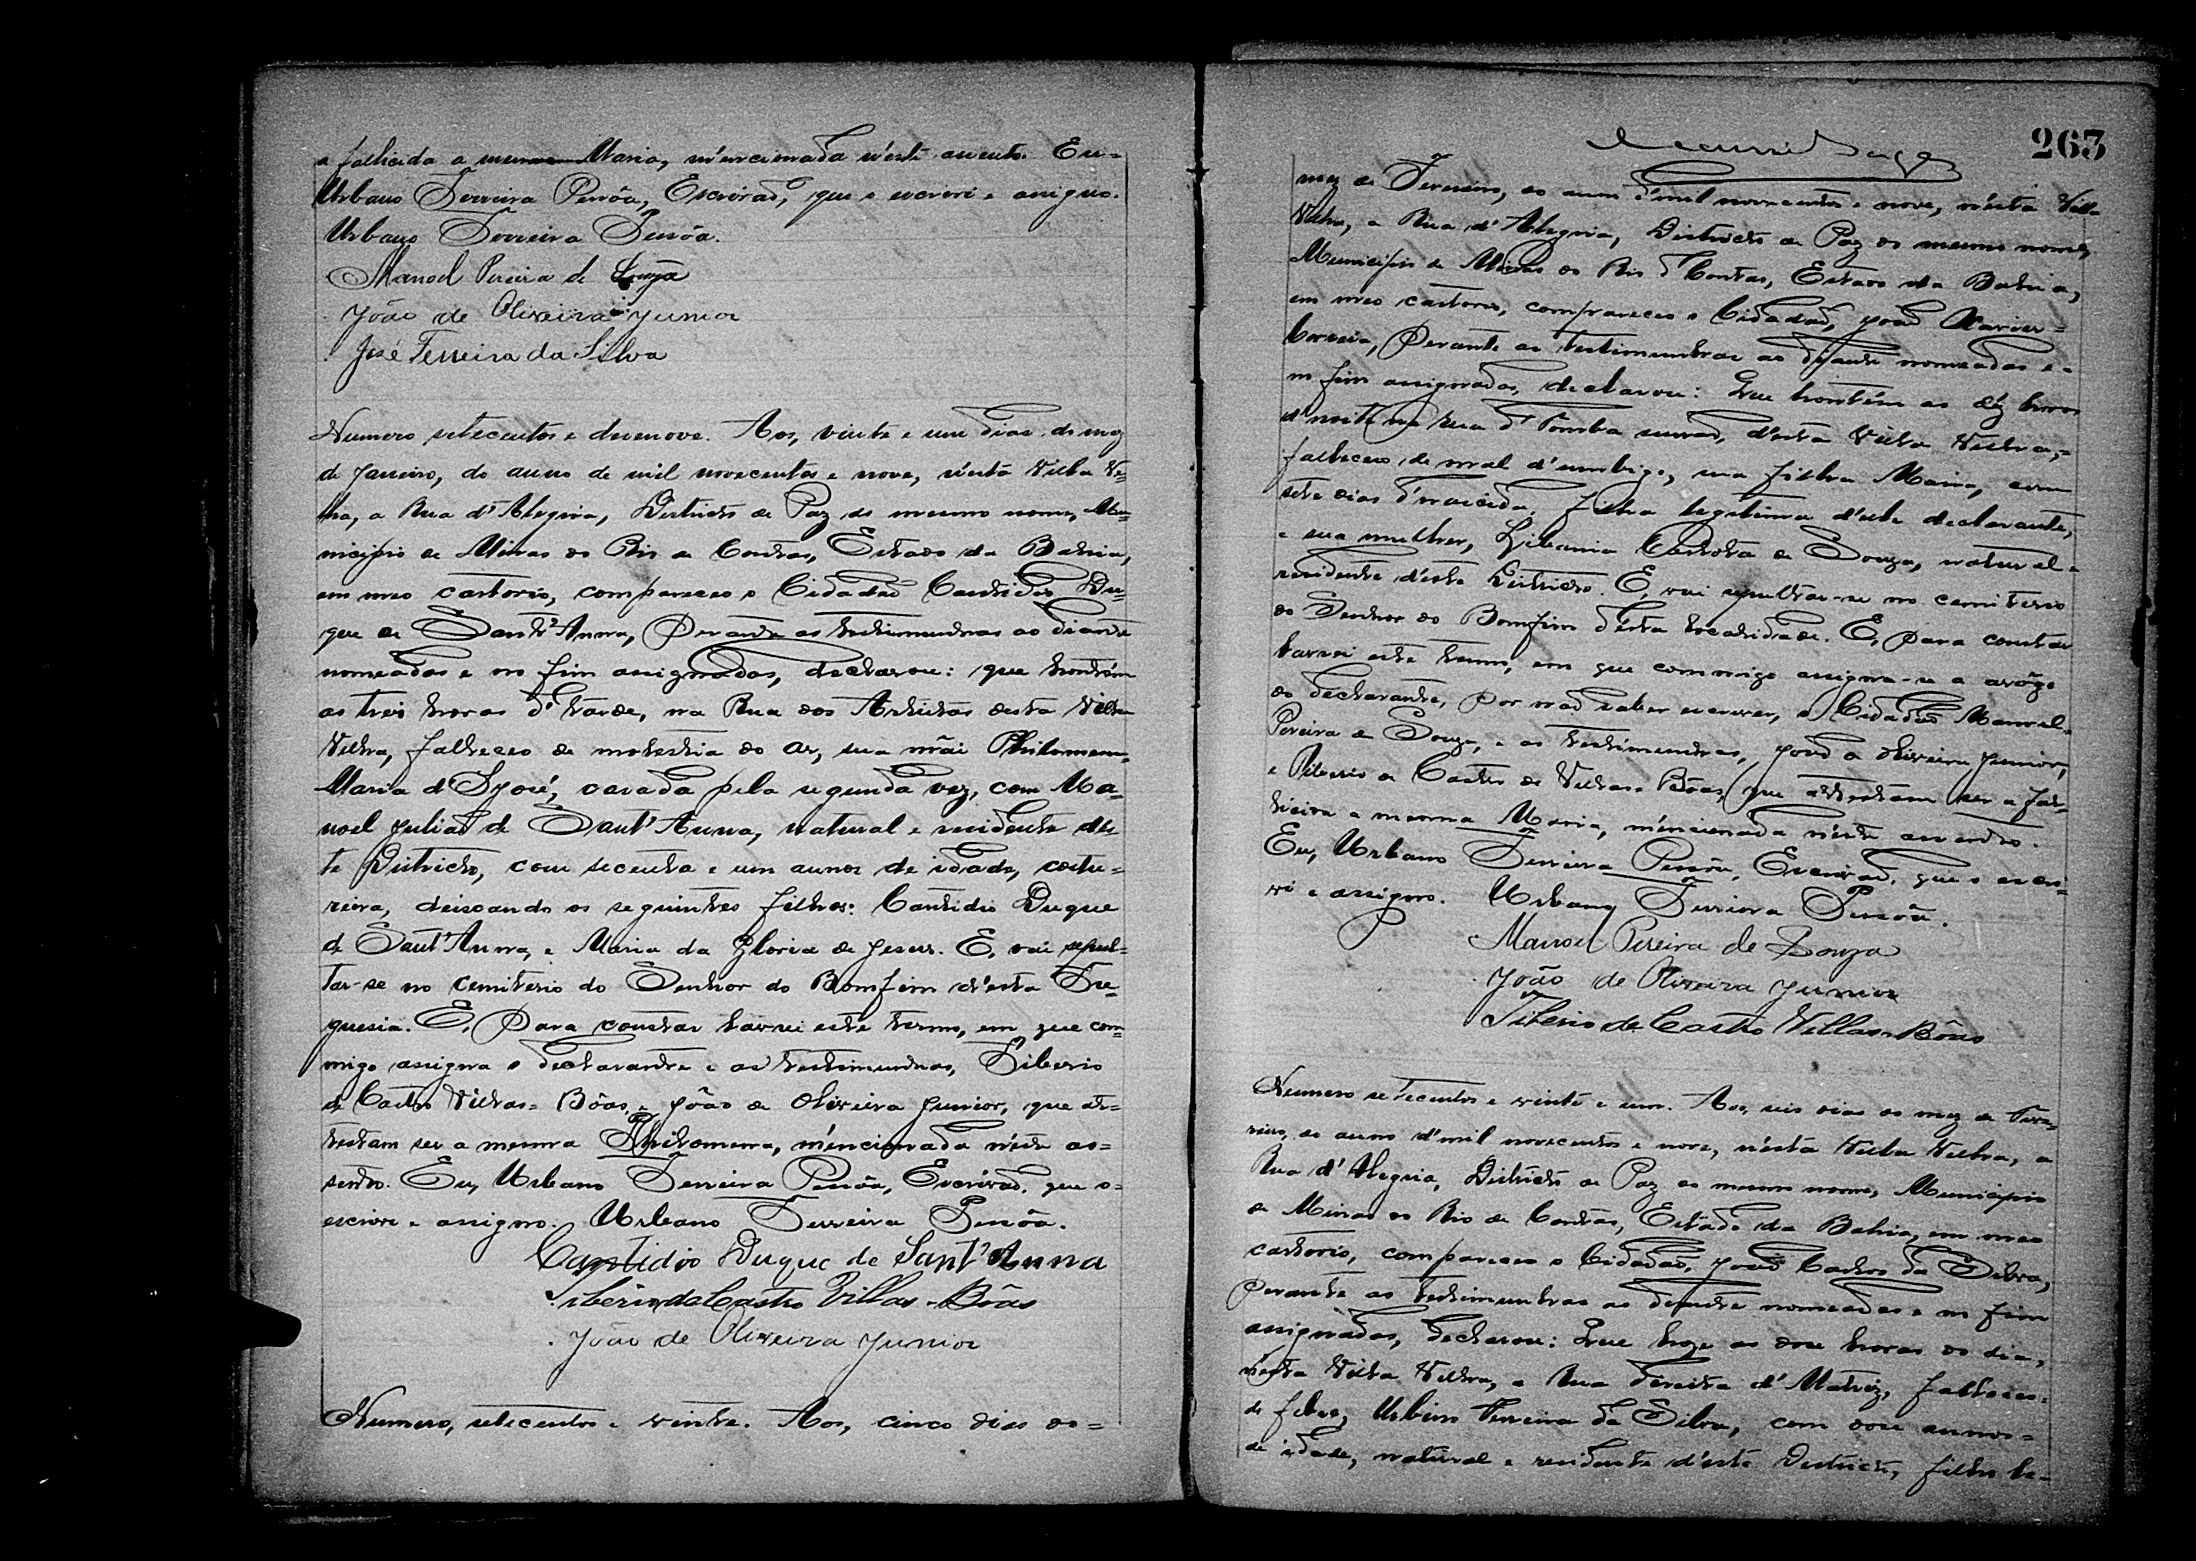 a fallicida a mesma Maria, mencionada n'este assento. Eu=
Urbano Ferreira Pessôa, Escrivão, que o escrevi e assigno.
Urbano Ferreira Pessôa.
Manoel Pereira de Souza
João de Oliveira Junior
José Ferreira da Silva
Numero setecentos e desenove. Aos, vinte e um dias do mez
de Janeiro, do anno de mil novecentos e nove, n'esta Villa Ve=
lha, a Rua d'Alegria, Districto de Paz do mesmo nome, Mu=
nicipio de Minas do Rio de Contas, Estado da Bahia,
em meo cartorio, compareceo o Cidadão Cantidio Du=
que de Sant'Anna, Perante as testimunhas ao diante
nomeadas e no fim assignadas, declarou: que hontém
as tres horas d'tarde, na Rua dos Artistas desta Villa
Velha, falleceo de molestia do ar, sua mãi Philomena
Maria d'S. José, casada pela segunda vez, com Ma=
noel Julião de Sant'Anna, natural e residente des=
te Districto, com secenta e um annos de idade, costu=
reira, deixando os seguintes filhos: Cantidio Duque
de Sant'Anna, e Maria da Gloria de Jesus. E, vai sepul=
tar-se no Cemiterio do Senhor do Bomfim d'esta Fre=
guesia. E, Para constar lavrei este termo, em que com=
migo assigna o declarante e as testimunhas, Tiberio
de Castro Villas=Bôas, e João de Oliveira Junior, que at=
testam ser a mesma Philomena, mencionada n'este as=
sento. Eu, Urbano Ferreira Pessôa, Escrivão, que o=
escrevi e assigno. Urbano Ferreira Pessôa.
Cantidio Duque de Sant'Anna
Tiberio de Castro Villas-Bôas
João de Oliveira Junior
Numero, setecentos e vinte. Aos, cinco dias do=
263
mez de Fevereiro, do anno d'mil novecentos e nove, n'esta Villa
Velha, a Rua d'Alegria, Districto de Paz do mesmo nome,
Municipio de Minas do Rio d'Contas, Estado da Bahia,
em meo cartorio, compareceo o Cidadão, João Xavier=
Correia, Perante as testimunhas ao diante nomeadas e=
no fim assignadas, declarou: Que hontém as déz horas
d'noite na rua d' Tomba , d'esta Villa Velha,=
falleceo de mal d'umbigo, sua filha Maria, com
sete dias d'nascida, filha legitima d'elle declarante,
e sua mulher, Libania Carlota de Souza, natural e
residente d'este Districto. E, vai sepultar-se no cemiterio
do Senhor do Bomfim d'esta localidade. E, para constar
lavrei este termo, em que commigo assigna-se a arôgo
do declarante, por não saber escrever, o Cidadão Manoel=
Pereira de Souza, e as testimunhas, João de Oliveira Junior,
e Tiberio de Castro de Villas=Bôas, que attestam ser a fal=
licida a mesma Maria, mencionada n'este assento.
Eu, Urbano Ferreira Pessôa, Escrivão, que o escre=
vi e assigno. Urbano Ferreira Pessôa.
Manoel Pereira de Souza
João de Oliveira Junior
Tiberio de Castro Villas-Bôas
Numero setecentos e vinte e um. Aos, seis dias do mez de Feve=
reiro, do anno d'mil novecentos e nove, n'esta Villa Velha, a
Rua d'Alegria, Districto de Paz do mesmo nome, Municipio
de Minas do Rio de Contas, Estado da Bahia, em meo
cartorio, compareceo o Cidadão, José Carlos da Silva,
Perante as testimunhas ao diante nomeadas e no fim
assignadas, declarou: Que hoje as doze horas do dia,
n'esta Villa Velha, a Rua Direita d'Matriz, falleceo=
de febre, Urbino Ferreira da Silva, com doze annos=
de idade, natural e residente d'este Districto, filho le=